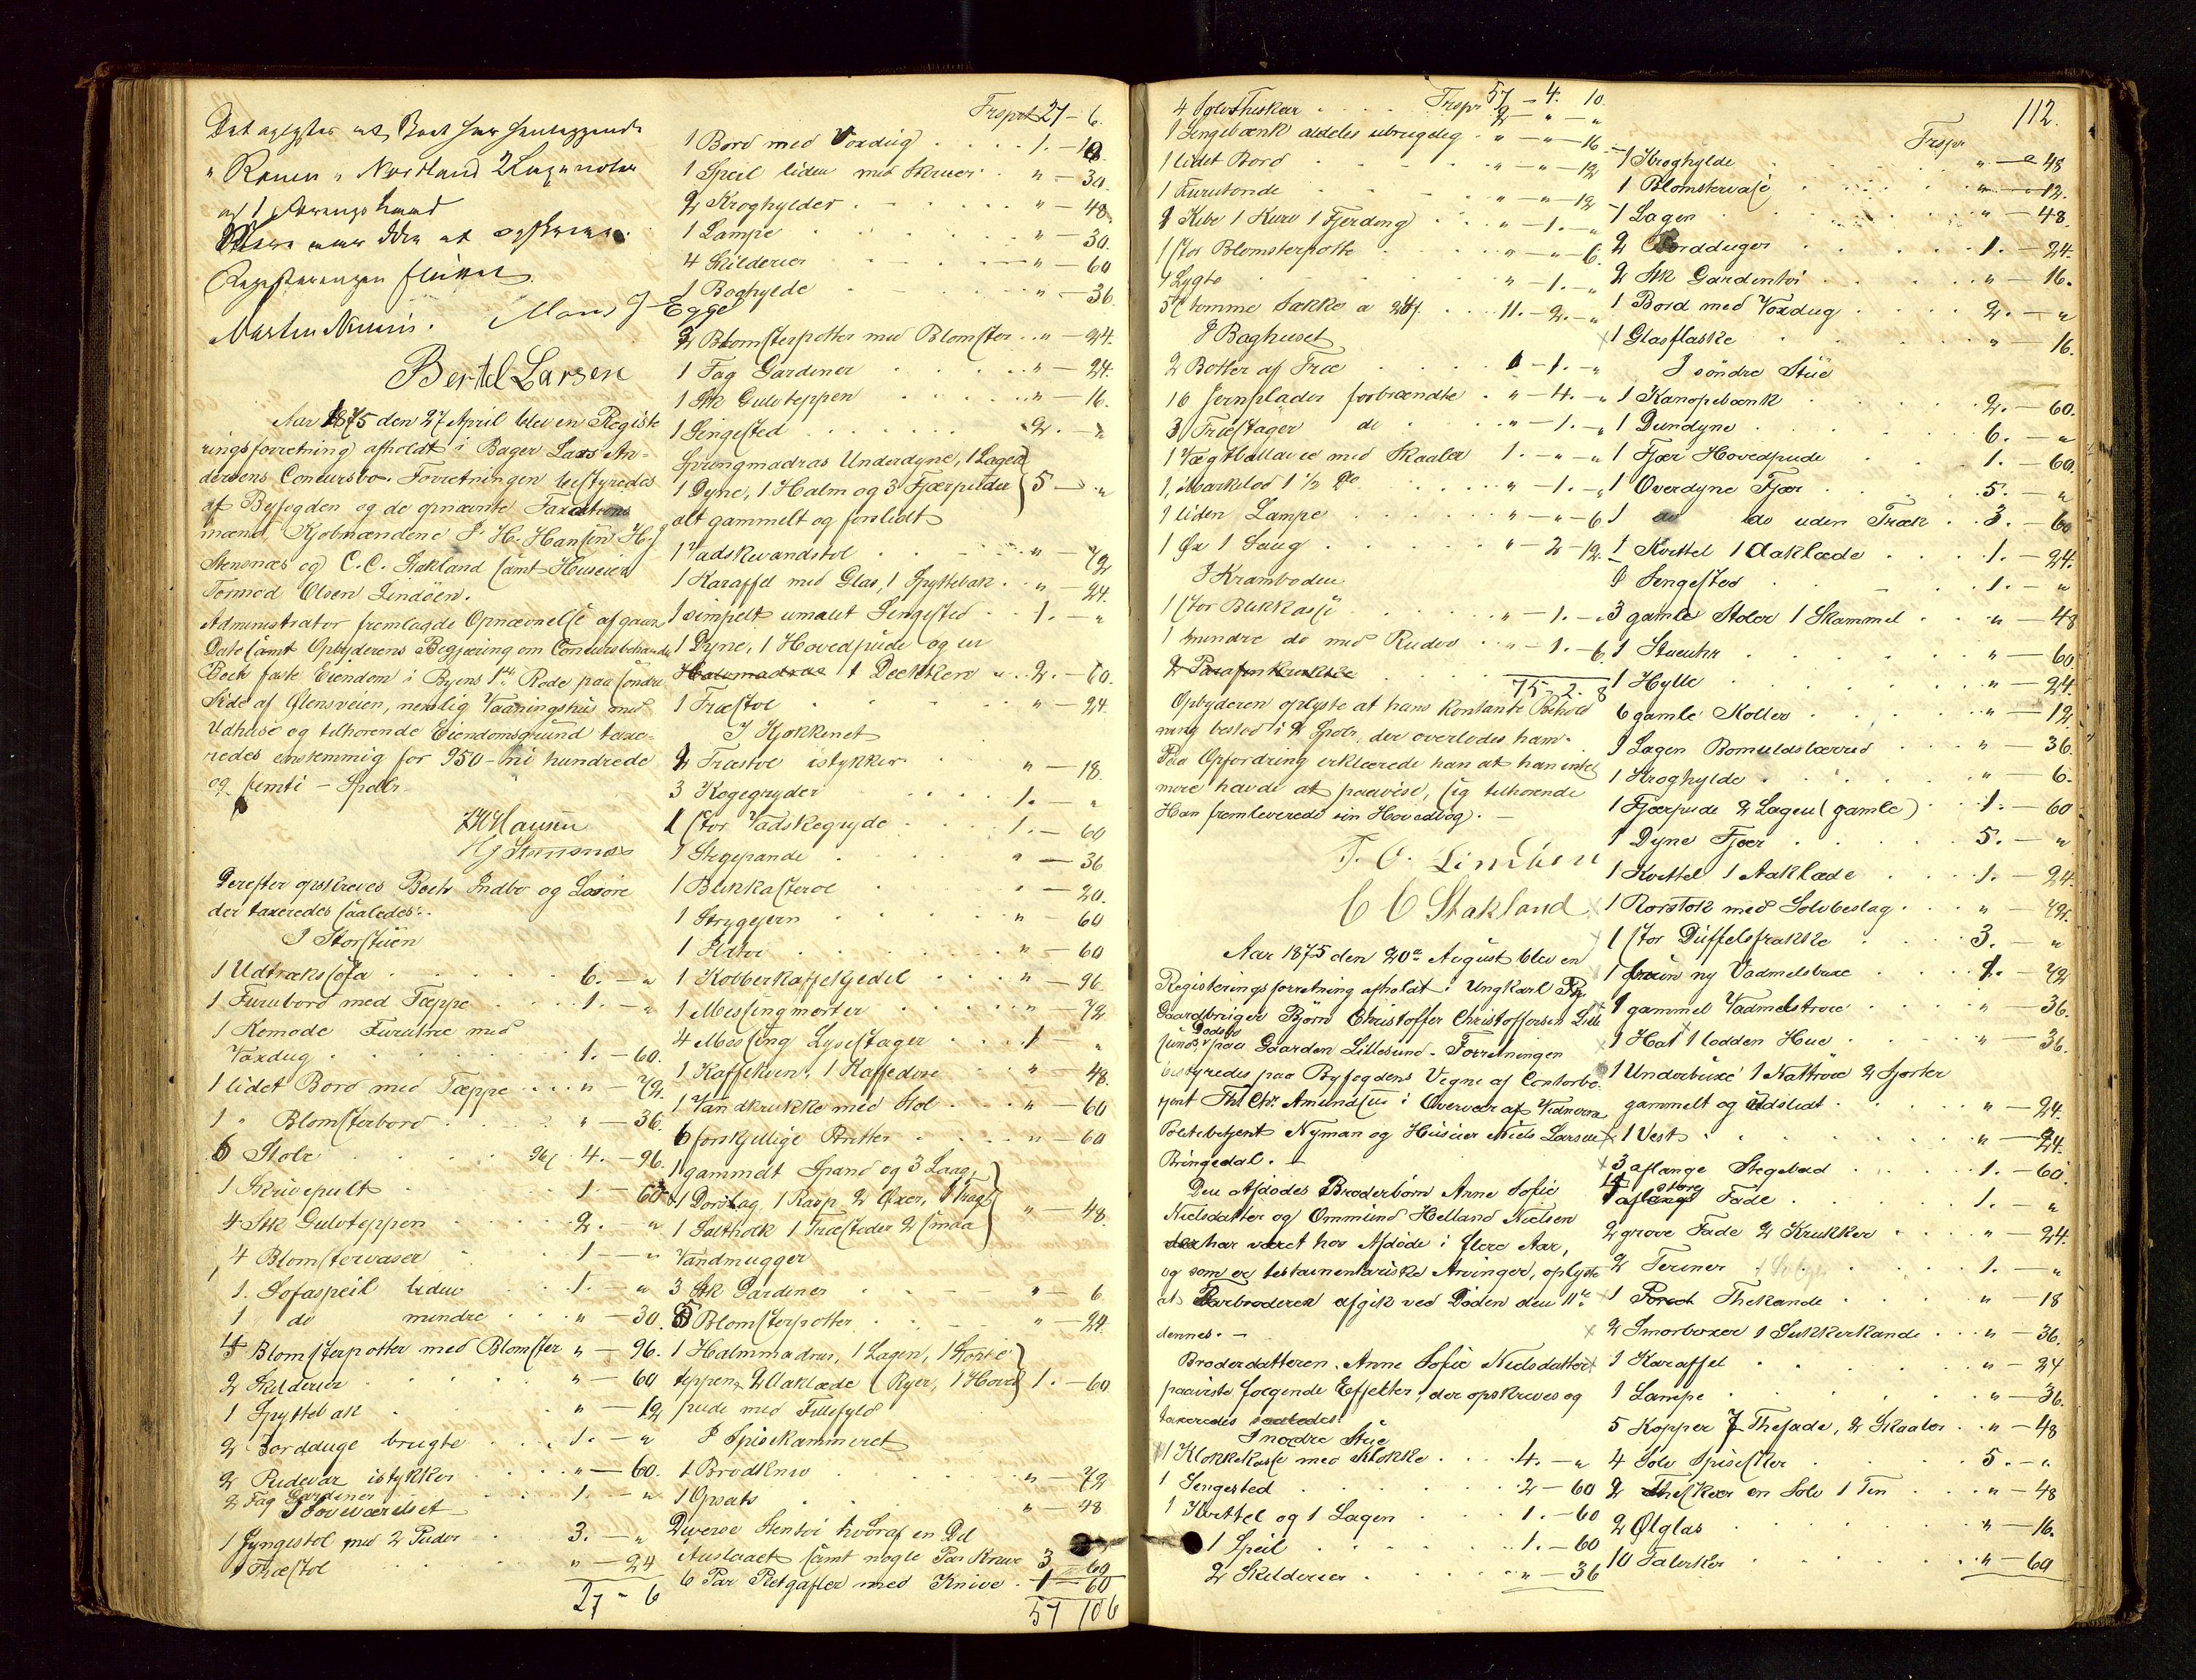 Det oplystes at Boet har henliggende
i Ranen i Nordland 2 Lagenoter
af 1
Mere var ikke at opskrive.
Registreringen sluttet
Mons J Egge
Bertel Larsen
Aar 1875 den 27 April blev en Registe
ringsforretning afholdt i Bager Lars An-
dersens Concursbo. Forretningen bestyredes
af Byfogden og de opnævnte Taxations
mænd, Kjøbmændene J. H. Hansen H. J.
Stensnæs og C. C. Stakland samt Huseier
Tormod Olsen Lindøen.
Administrator fremlagde Opnævnelse af gaars
Dato samt Opbyderens Begjæring om Concursbehandl
Boets faste Eiendom i Byens 1ste Rode paa søndre
Side af Ølensveien, nemlig Vaaningshus med
Udhuse og tilhørende Eiendomsgrund taxe-
redes enstemmig for 950 - ni hundrede
og femti - Spdlr.
J H Hansen
H J Stensnæs
Derefter opskreves Boets Indbo og Løsøre
der taxeredes saaledes:
I Storstuen
1 Udtrækssofa 6. - "
1 Furubord med Tæppe 1. - "
1 Komode Furutræ med
Voxdug 1. - 60.
1 lidet Bord med Tæppe " - 72.
1 " Blomsterbord " - 36.
6 Stole 4. - 96.
1 Skrivepult 1 - 60
4 Stk Gulvteppen 2. - "
4 Blomstervaser 1 - "
1. Sofaspeil liden 1. - "
1 do mindre " - 30.
4 Blomsterpotter med Blomster " - 96.
2 Skilderier " - 60
1 Spyttebak " - 12
2 Bordduge brugte 1. - "
2 Pudevar istykker " - 60.
2 Fag Gardiner 1. - "
I Soveværelset
1 Gyngestol med 2 Puder 3. - "
1 Træstol " - 24
27 - 6
Trspt 27 - 6.
1 Bord med Voxdug 1. - 18.
1 Speil liden med Skruer " - 30.
2 Kroghylder " - 48.
1 Lampe " - 30.
4 Skilderier " - 60
1 Boghylde " - 36.
2 Blomsterpotter med Blomster " - 24.
1 Fag Gardiner " - 24.
1 Stk Gulvteppen " - 16.
1 Sengested 2. - "
Springmadras Underdyne, 1 Lagen
1 Dyne, 1 Halm og 3 Fjærpuder 5 - "
alt gammelt og forslidt
1 Vadskevandstol " - 72
1 Karaffel med Glas, 1 Spyttebak " - 24.
1 simpelt umalet Sengested 1. - "
1 Dyne, 1 Hovedpude og en
Halmmadras 1 Dækken 2. - 60.
1 Træstol " - 24.
I Kjøkkenet
2 Træstole istykker " - 18.
3 Kogegryder 1. - "
1 stor Vadskegryde 1. - 60
1 Stegepande " - 36
1 Blikkasterol " - 20.
1 Strygejern " - 60
1 Ildtøi " - 60
1 Kobberkaffekjedel " - 96
1 Messingmorter " - 72
4 Messing Lysestager 1 - "
1 Kaffekvern, 1 Kaffedose " - 48.
1 Vandkrukke med Stol " - 60
6 forskjellige Bøtter " - 60
1 gammelt Spand og 3 Laag,
1 Dørslag 1 Rasp 2 Øxer, 1 Tragt
1 Saltholk 1 Træsteder 2 smaa " - 48.
Vandmugger
3 Stk Gardiner " - 6
5 Blomsterpotter " - 24.
1 Halmmadras, 1 Lagen, 1 Stoppe
teppen, 2 Aaklæde (Ryer, 1 Hoved 1. - 60
pude med Fillefyld
I Spisekammeret
1 Brødkniv " - 72
1 Opsats " - 48
Diverse Stentøi hvoraf en Del
Anslaaet samt nogle Par Knive 3 - 60
6 Par Bordgafler med Knive 1 - 60
57 106
112.
4 Sølvtheskeer Trspt 57 - 4. 10.
2 " "
1 Sengebænk aldeles ubrugelig " - " - 16
1 lidet Bord " - " - 12
1 Furutønde " - " - 12
1 Kibe 1 Kurv 1 Fjerding " - 1. - "
1 stor Blomsterpotte " - " - 6.
1 Lygte " - 1. - "
57 tomme Sække a 24 s. 11. - 2. - "
I Baghuset
2 Bøtter af Træ 1. - "
16 Jernplader forbrændte " - 4. - "
3 Træstager do " - 1. - "
1 Vægtbalance med Skaaler 1. - " - "
1 " - 1. - "
1 liden Lampe " - " - 6
1 Øx 1 Saug " - 2 - 12.
I Kramboden
1 stor Blikkasse " - 1. - "
1 mindre do med Ruder " - 1. - 6.
2 Parafinkrukker
75. 2. 8
Opbyderen oplyste at hans kontante Behold
ning bestod i 2 Spdlr. der overlodes ham.
Paa Opfordring erklærede han at han intet
mere havde at paavise, sig tilhørende
Han fremleverede sin Hovedbog. -
T. O. Lindøen
C C Stakland
Aar 1875 den 20de August blev en
Registeringsforretning afholdt i Ungkarl og
Gaardbruger Bjørn Christoffer Christoffersen Lille
sunds Dødsbo paa Gaarden Lillesund. Forretningen
bestyredes paa Byfogdens Vegne af Contorbe-
tjent Th. Chr. Amundsen i Overvær af Vidnerne
Politibetjent Nyman og Huseier Niels Larsen
Bringedal. -
Den Afdødes Broderbørn Anne Sofie
Nielsdatter og Ommund Helland Nielsen
der har været hos Afdøde i flere Aar,
og som er testamentariske Arvinger, oplyste
at Farbroderen afgik ved Døden den 11te
dennes. -
Broderdatteren Anne Sofie Nielsdatter
paaviste følgende Effekter, der opskreves og
taxeredes saaledes:
I nordre Stue
1 Klokkekasse med Klokke 4. - "
1 Sengested 2 - 60
1 Kvittel og 1 Lagen 1. - 60
1 Speil 1. - 60
2 Skilderier " - 36
Trspt
1 Kroghylde " - 48
1 Blomstervase " - 12.
1 Lagen " - 48.
2 Bordduger 1. - 24.
2 Stk Gardentøi " - 16.
1 Bord med Voxdug 2. - "
1 Glasflaske " - 16.
I søndre Stue
1 Kanapebænk 2. - 60.
1 Dundyne 6. - "
1 Fjær Hovedpude 1. - 60.
1 Overdyne Fjær 5. - "
1 do do uden Træk 3. - 60
1 Kvittel 1 Aaklæde 1. - 24.
1 Sengested 1. - "
3 gamle Stoler 1 Skammel " - 48
1 Stueuhr " - 60.
1 Hylle " - 24.
6 gamle Koller " - 12
1 Lagen Bomuldslærred " - 36.
1 Kroghylde " - 6.
1 Fjærpude 2 Lagen (gamle) 1. - 60
1 Dyne Fjær 5. - "
1 Kvittel 1 Aaklæde 1. - 24.
1 Rørstok med Sølvbeslag " - 72.
1 stor Düffelsfrakke 3. - "
1 ny Vadmelsbuxe 1. - 72
1 gammel Vadmelstrøie " - 36.
1 Hat 1 lodden Hue " - 36.
1 Underbuxe 1 Nattrøie 2 Skjorter
gammelt og udslidt " - 24.
1 Vest " - 24.
3 aflange Stegefad 1. - 60.
14 store Fade 1. - "
2 grove Fade 2 Krukker " - 24.
2 Teriner 1. - "
1 Thekande " - 18
2 Smørboxer 1 Sukkerkande " - 36.
1 Karaffel " - 24
1 Lampe " - 36.
5 Kopper 7 Thefade, 2 Skaaler " - 48
4 Sølv Spiseskeer 5. - "
2 Theskeer en Sølv 1 Tin " - 48
2 Ølglas " - 16.
10 Talerker " - 60